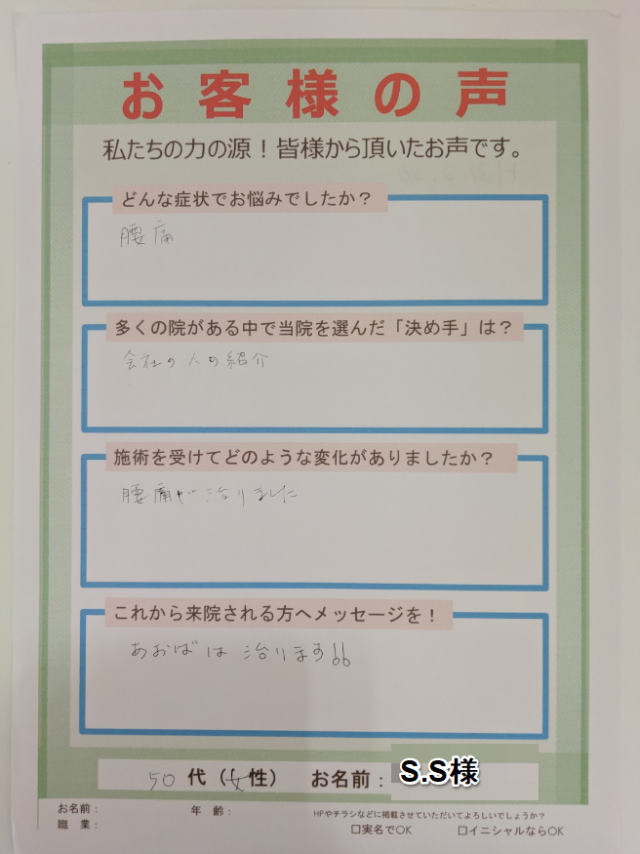 お客様の声
私たちの力の源！皆様から頂いたお声です。
どんな症状でお悩みでしたか？
腰痛
多くの院がある中で当院を選んだ「決め手」は？
会社の人の紹介
施術を受けてどのような変化がありましたか？
腰痛が治りました
これから来院される方へメッセージを！
あおばは治ります!!
50代（女性） お名前：S.S様
お名前： 年齢： HPやチラシなどに掲載させていただいてよろしいでしょうか？
職業： □実名でOK □イニシャルならOK